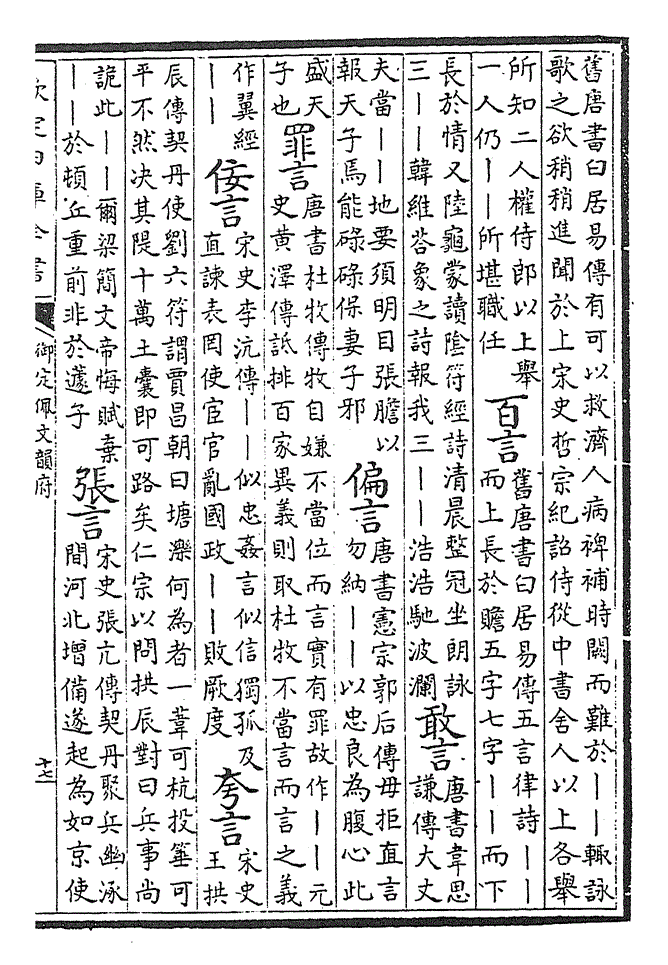 舊唐書曰居易傳有可以救濟人病裨補時闕而難於||輒詠
歌之欲稍稍進聞於上宋史哲宗紀詔侍從中書舍人以上各舉
所知二人權侍郎以上舉
一人仍||所堪職任
百言
舊唐書曰居易傳五言律詩||
而上長於贍五字七字||而下
長於情又陸龜蒙讀陰符經詩清晨整冠坐朗詠
三||韓維荅象之詩報我三||浩浩馳波瀾
敢言
唐書韋思
謙傳大丈
夫當||地要須明目張膽以
報天子焉能碌碌保妻子邪
偏言
唐書憲宗郭后傳毋拒直言
勿納||以忠良為腹心此
盛天
子也
罪言
唐書杜牧傳牧自嫌不當位而言實有罪故作||元
史黄澤傳詆排百家異義則取杜牧不當言而言之義
作翼經
||
佞言
宋史李沆傳||似忠姦言似信獨孤及
直諫表罔使宦官亂國政||敗厥度
夸言
宋史
王拱
辰傳契丹使劉六符謂賈昌朝曰塘濼何為者一葦可杭投箠可
平不然决其隄十萬土囊即可路矣仁宗以問拱辰對曰兵事尚
詭此||爾梁簡文帝悔賦棄
||於頓丘重前非於蘧子
張言
宋史張亢傳契丹聚兵幽涿
間河北增備遂起為如京使
欽定四庫全書
御定佩文韻府
十七